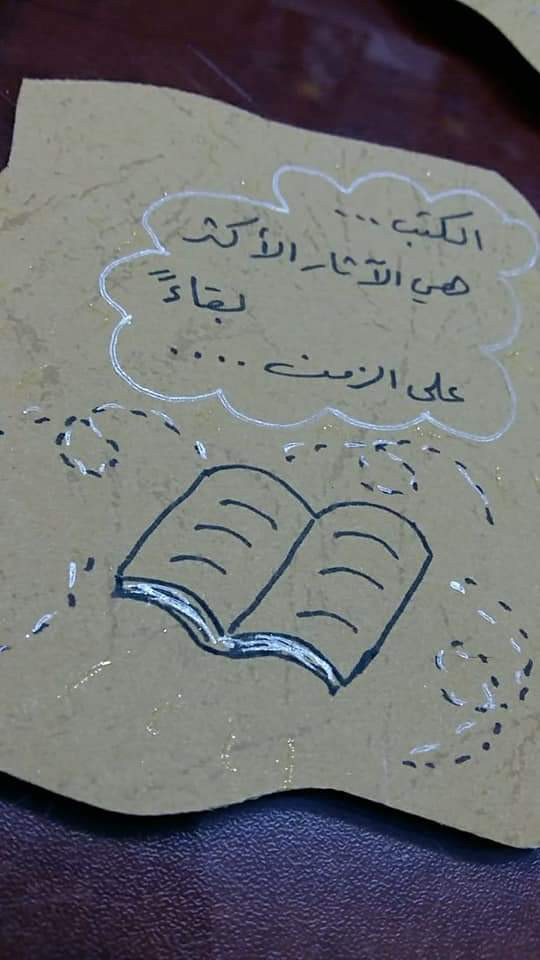 الكتب...
هي الآثار الأكثر
بقاءً
على الزمن....